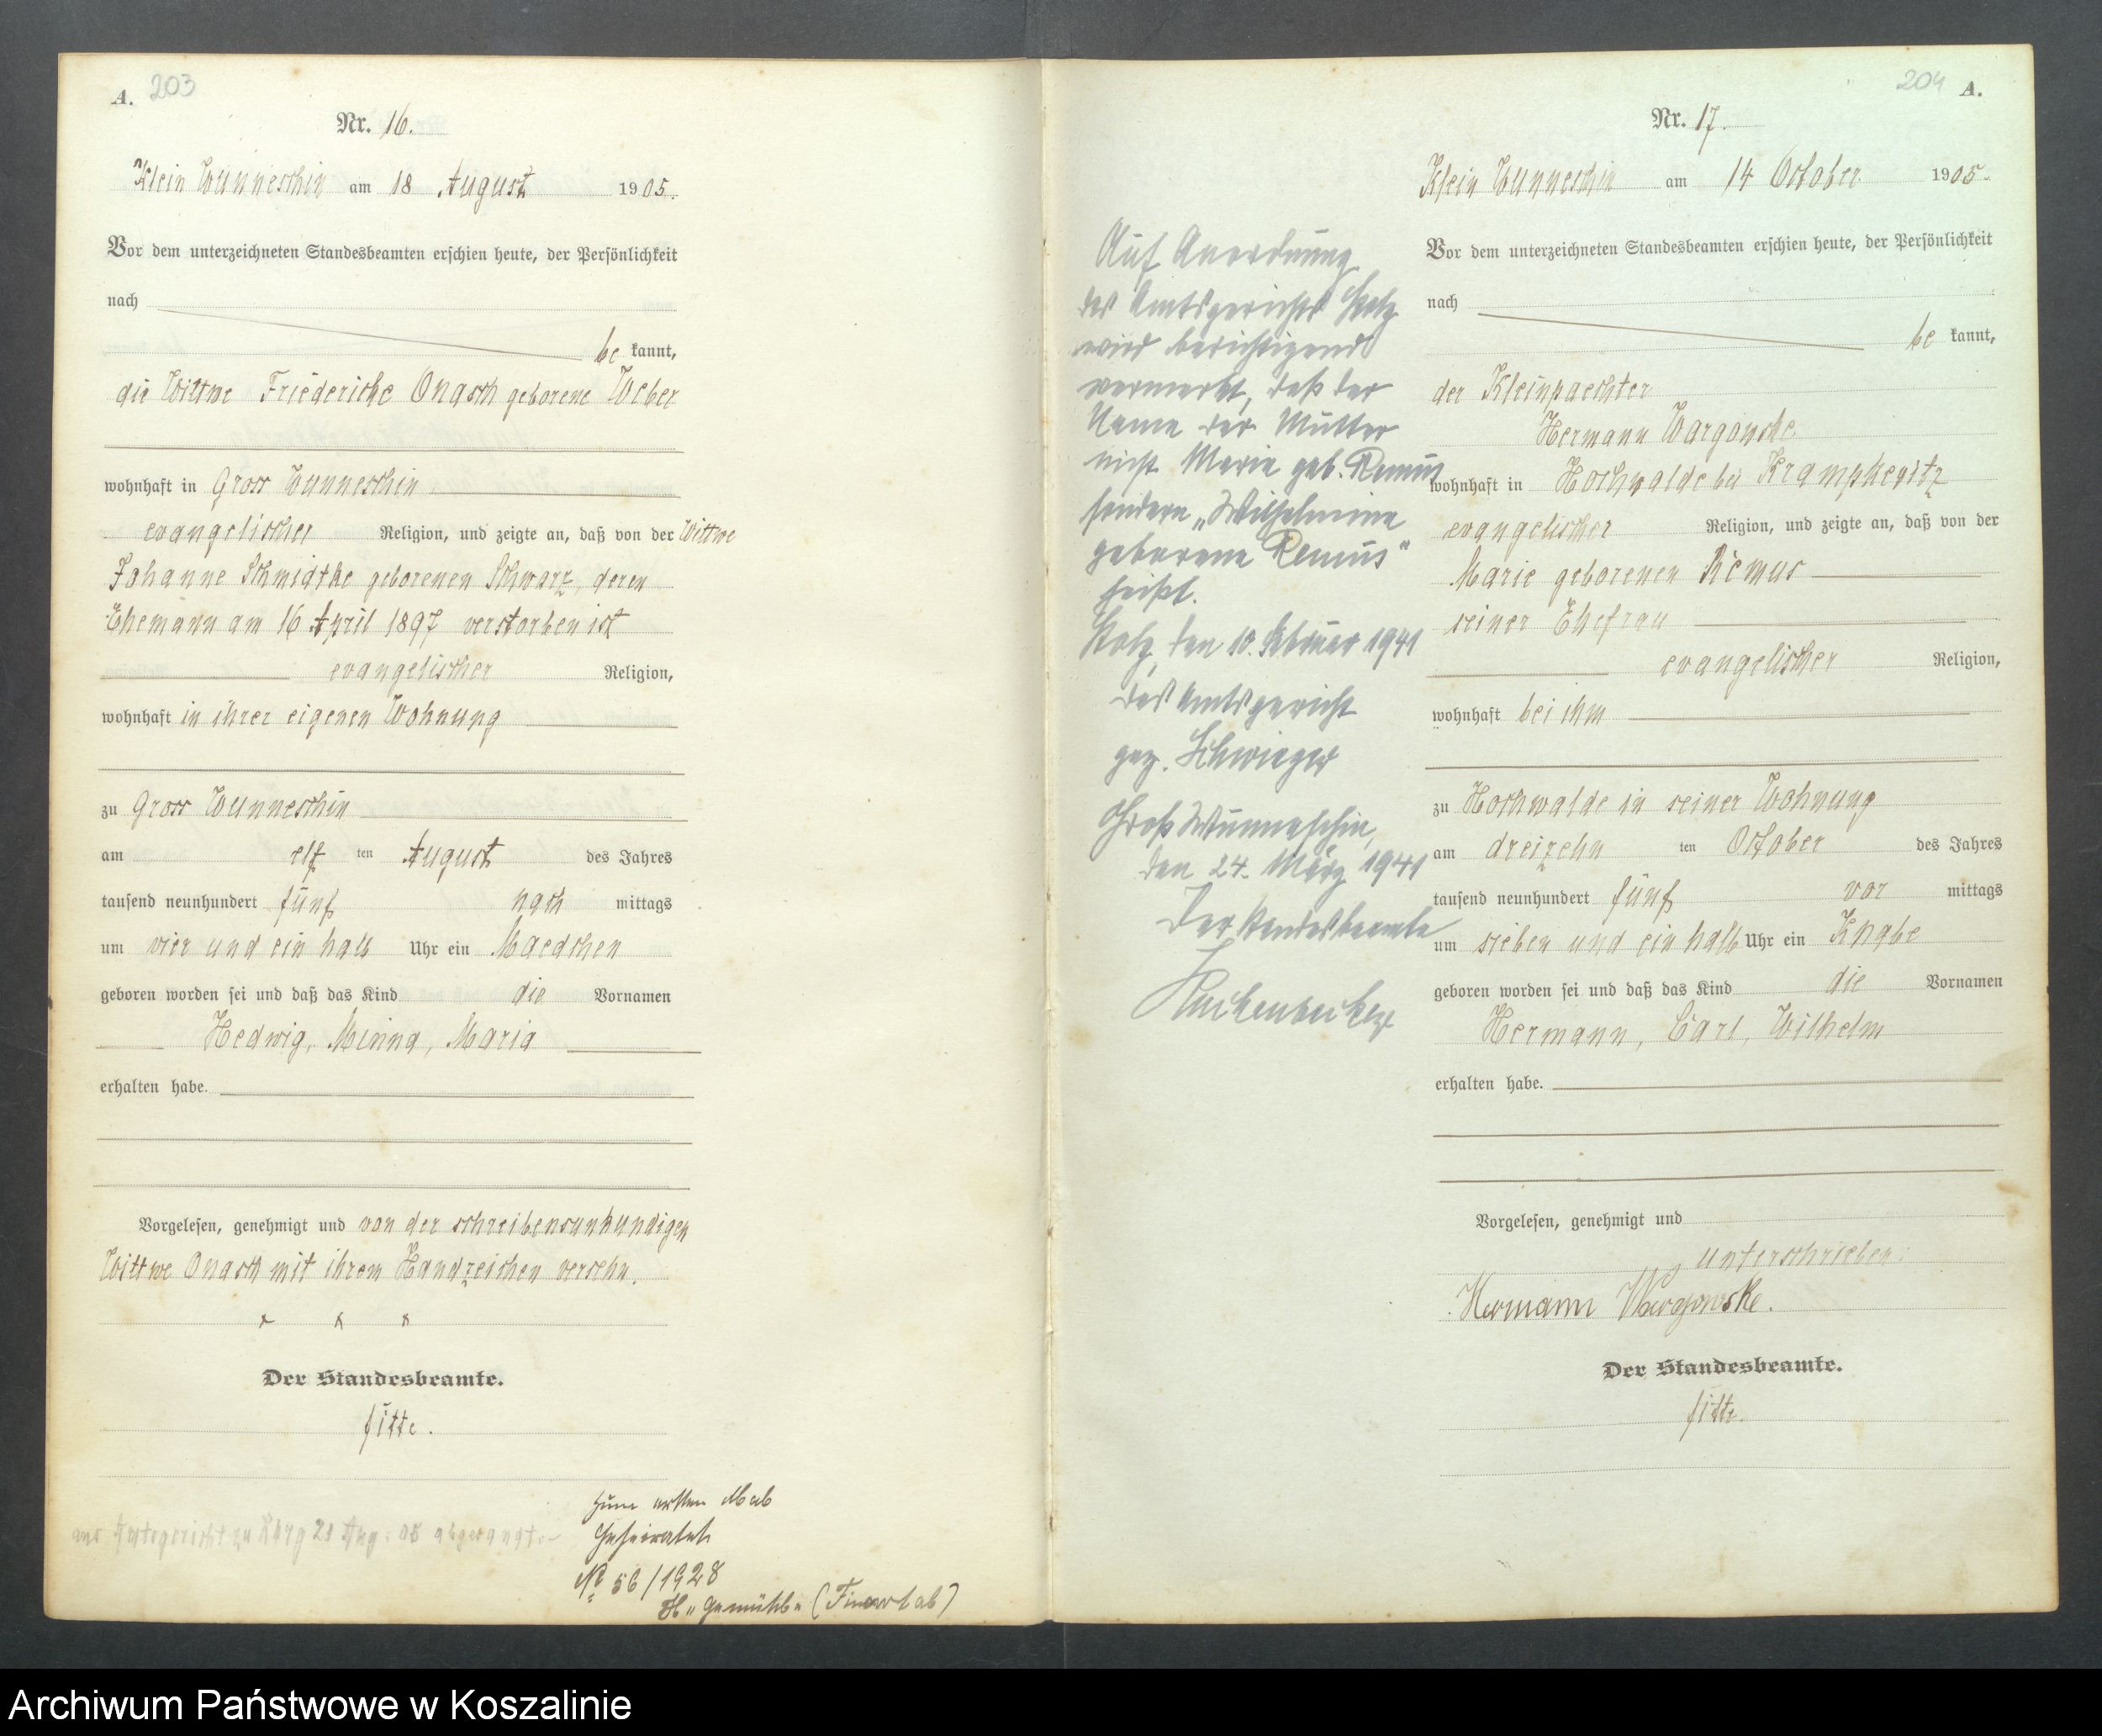 A. 203
Nr. 16.
Klein Wunneschin am 18 August 1905.
Vor dem unterzeichneten Standesbeamten erschien heute, der Persönlichkeit
nach
be kannt,
die Wittwe Friederieke Onasch geborene Weber
wohnhaft in Gross Wunneschin
evangelischer Religion, und zeigte an, daß von der Wittwe
Johanne Schmidtke geborenen Schwarz, deren
Ehemann am 16 April 1897 verstorben ist
evangelischer Religion,
wohnhaft in ihrer eigenen Wohnung
zu Gross Wunneschin
am elf ten August des Jahres
tausend neunhundert fünf nach mittags
um vier und ein halb Uhr ein Maedchen
geboren worden sei und daß das Kind die Vornamen
Hedwig, Minna, Maria
erhalten habe.
Vorgelesen, genehmigt und von der schreibensunkundigen
Wittwe Onasch mit ihrem Handzeichen versehn.
x x x
Der Standesbeamte.
fitte.
Amtsgericht zu 21 Aug. 05
Zum ersten Mal
Geheiratet
No 56/1928
204 A.
Nr. 17.
Klein Wunneschin am 14 October 1905.
Vor dem unterzeichneten Standesbeamten erschien heute, der Persönlichkeit
nach
be kannt,
der Kleinpaechter
Hermann Wargowske
wohnhaft in Hochwalde bei Krampkewitz
evangelischer Religion, und zeigte an, daß von der
Marie geborenen Remus
seiner Ehefrau
evangelischer Religion,
wohnhaft bei ihm
zu Hochwalde in seiner Wohnung
am dreizehn ten October des Jahres
tausend neunhundert fünf vor mittags
um sieben und ein halb Uhr ein Knabe
geboren worden sei und daß das Kind die Vornamen
Hermann, Carl, Wilhelm
erhalten habe.
Vorgelesen, genehmigt und
unterschrieben:
Hermann Wargowske.
Der Standesbeamte.
fitte.
Auf Anordnung
des Amtsgerichts Stolp
wird berichtigend
vermerkt, daß der
Name der Mutter
nicht Marie geb. Remus
sondern „Wilhelmine
geborene Remus“
heißt.
Stolp, den 10. Februar 1941
Das Amtsgericht
gez. Schwieger
Groß Wunneschin,
den 24. März 1941
Der Standesbeamte
Archiwum Państwowe w Koszalinie